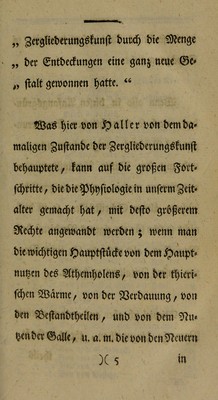 „ Zergliederungskunst durch die Menge
„ der Entdeckungen eine ganz neue Ge-
„ stalt gewonnen hatte. “
Was hier von Haller von dem da-
maligen Zustande der Zergliederungskunst
behauptete, kann auf die großen Fort-
schritte, die die Physiologie in unserm Zeit-
alter gemacht hat, mit desto größerem
Rechte angewandt werden; wenn man
die wichtigen Hauptstücke von dem Haupt-
nutzen des Athemholens, von der thieri-
schen Wärme, von der Verdauung, von
den Bestandtheilen, und von dem Nu-
tzen der Galle, u. a. m. die von den Neuern
)( 5 in